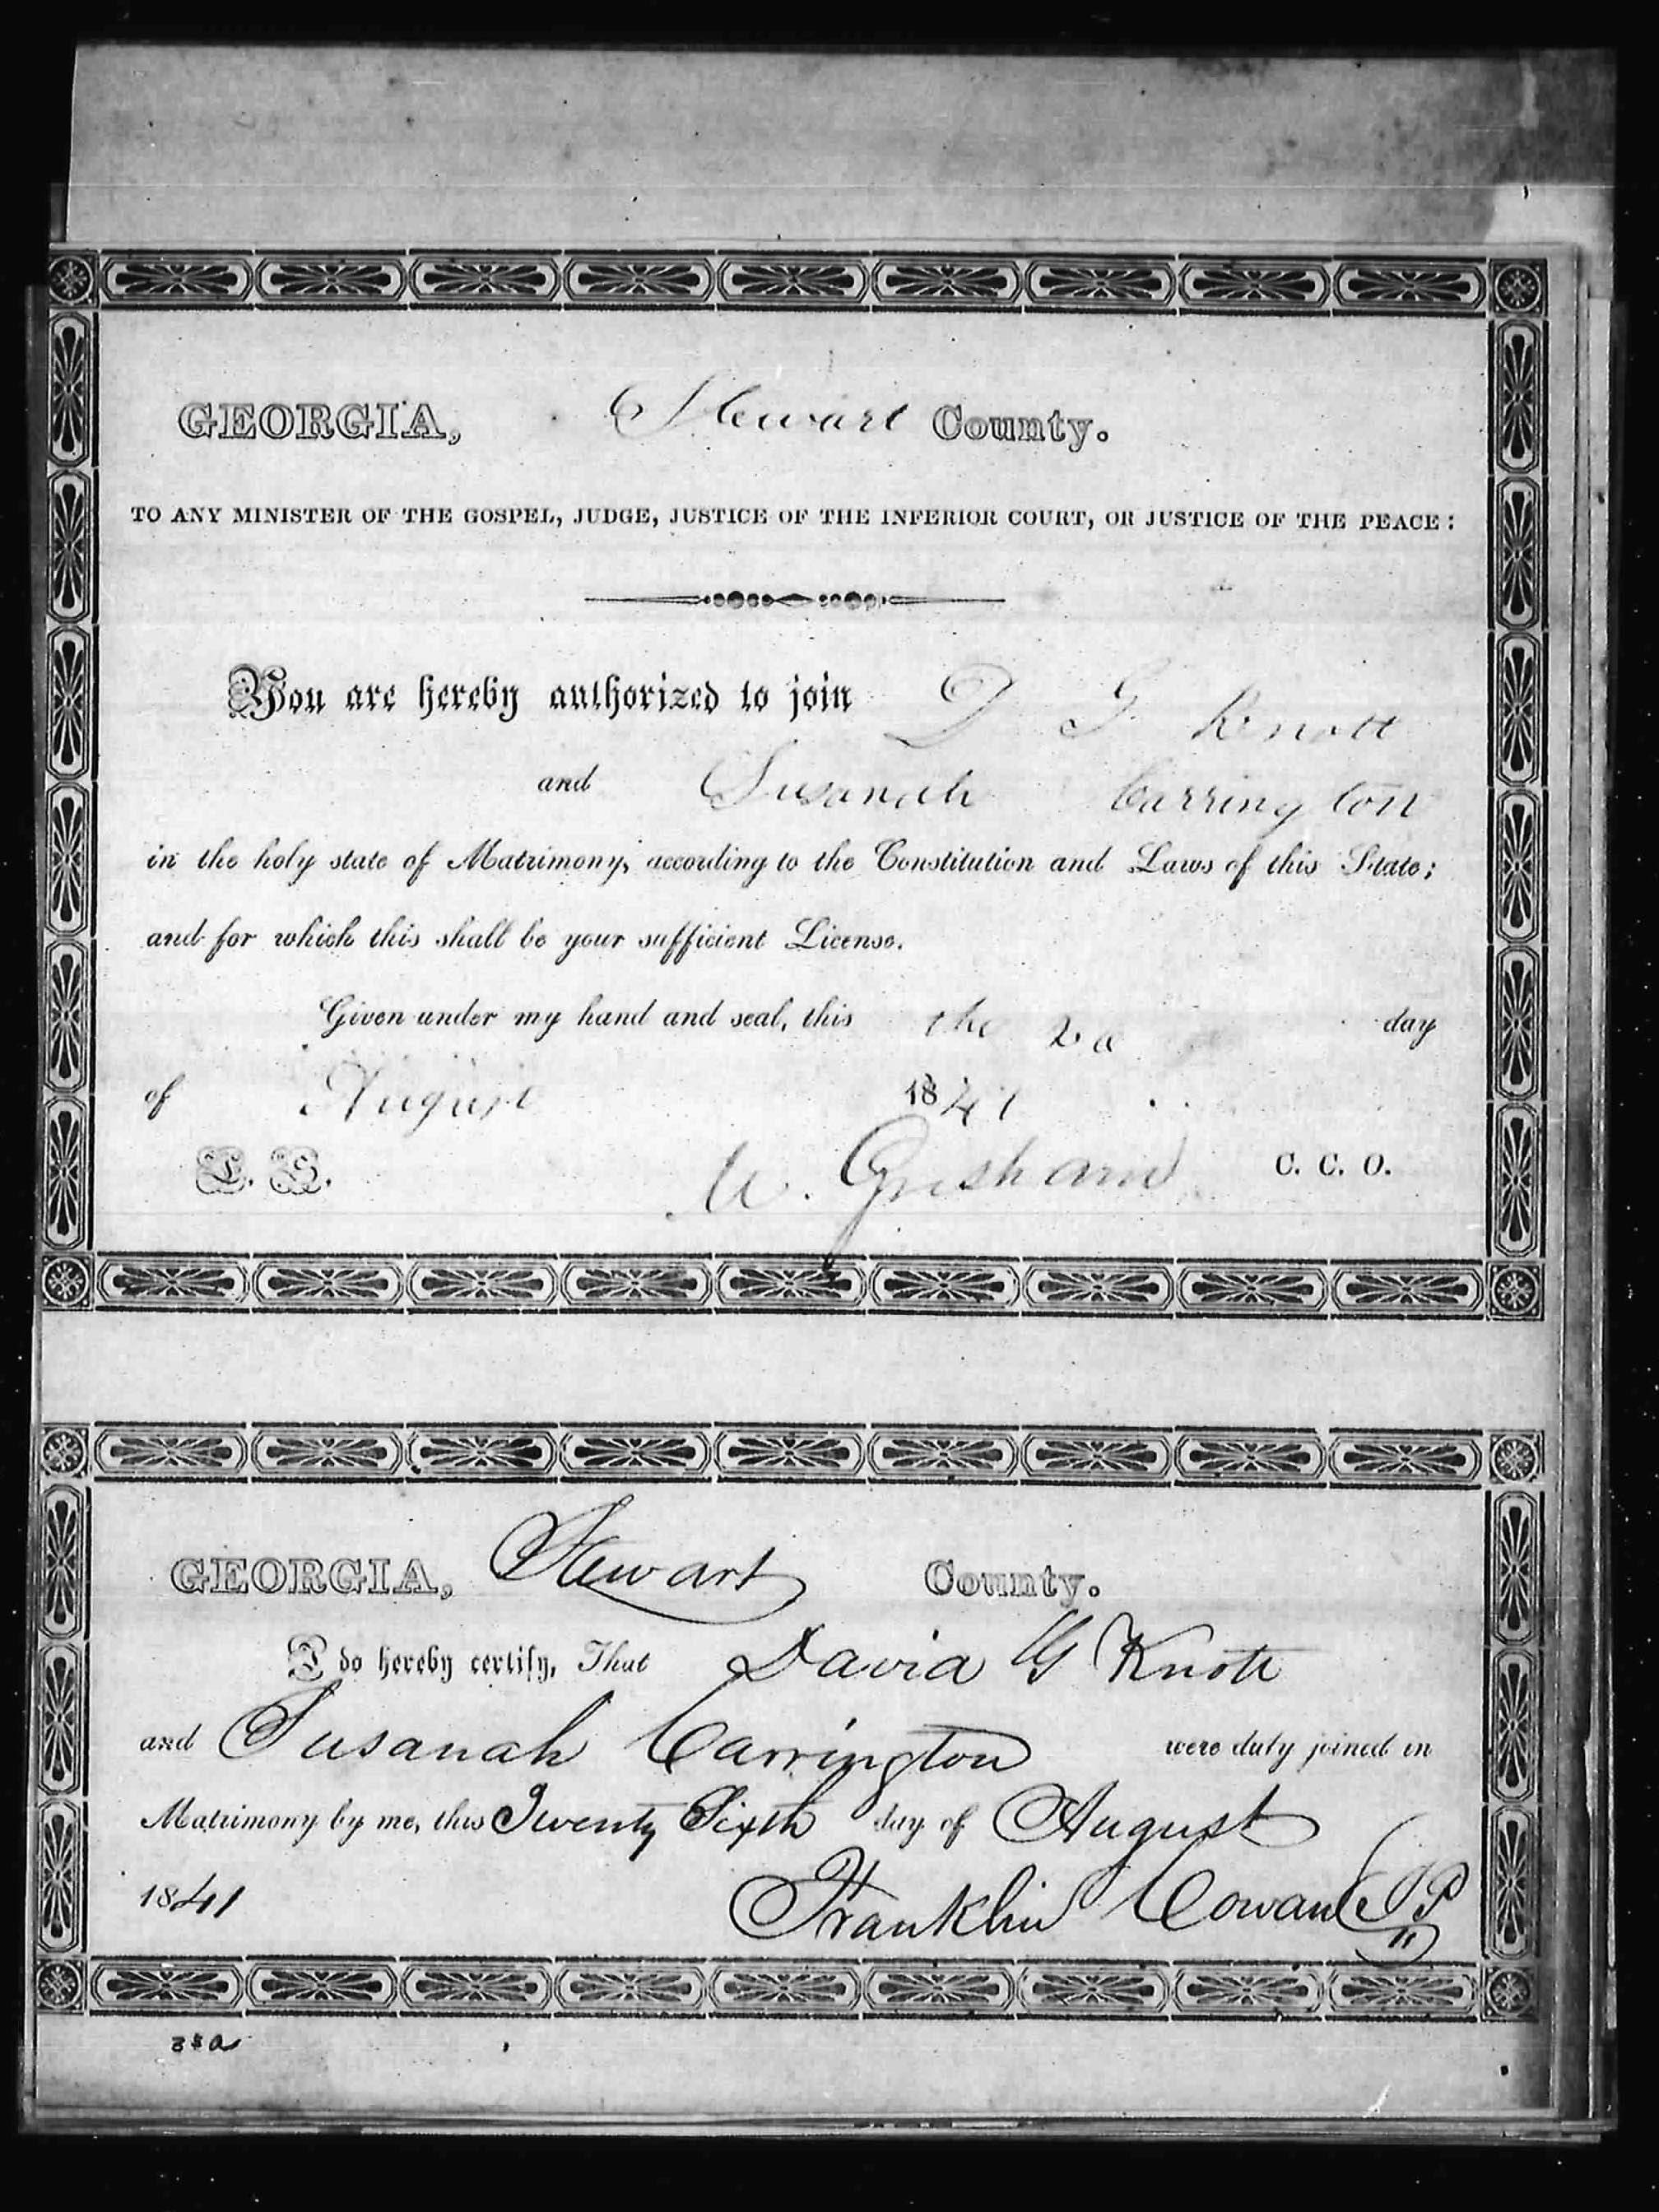 GEORGIA, Stewart County.
TO ANY MINISTER OF THE GOSPEL, JUDGE, JUSTICE OF THE INFERIOR COURT, OR JUSTICE OF THE PEACE:
You are hereby authorized to join D G Knott
and Susanah Carrington
in the holy state of Matrimony, according to the Constitution and Laws of this State;
and for which this shall be your sufficient License.
Given under my hand and seal, this the day
of August 1841
L. S. W. Grisham C. C. O.
GEORGIA, Stewart County.
I do hereby certify, That David G Knott
and Susanah Carrington were duly joined in
Matrimony by me, this Twenty Sixth day of August
1841 Franklin Cowan JP